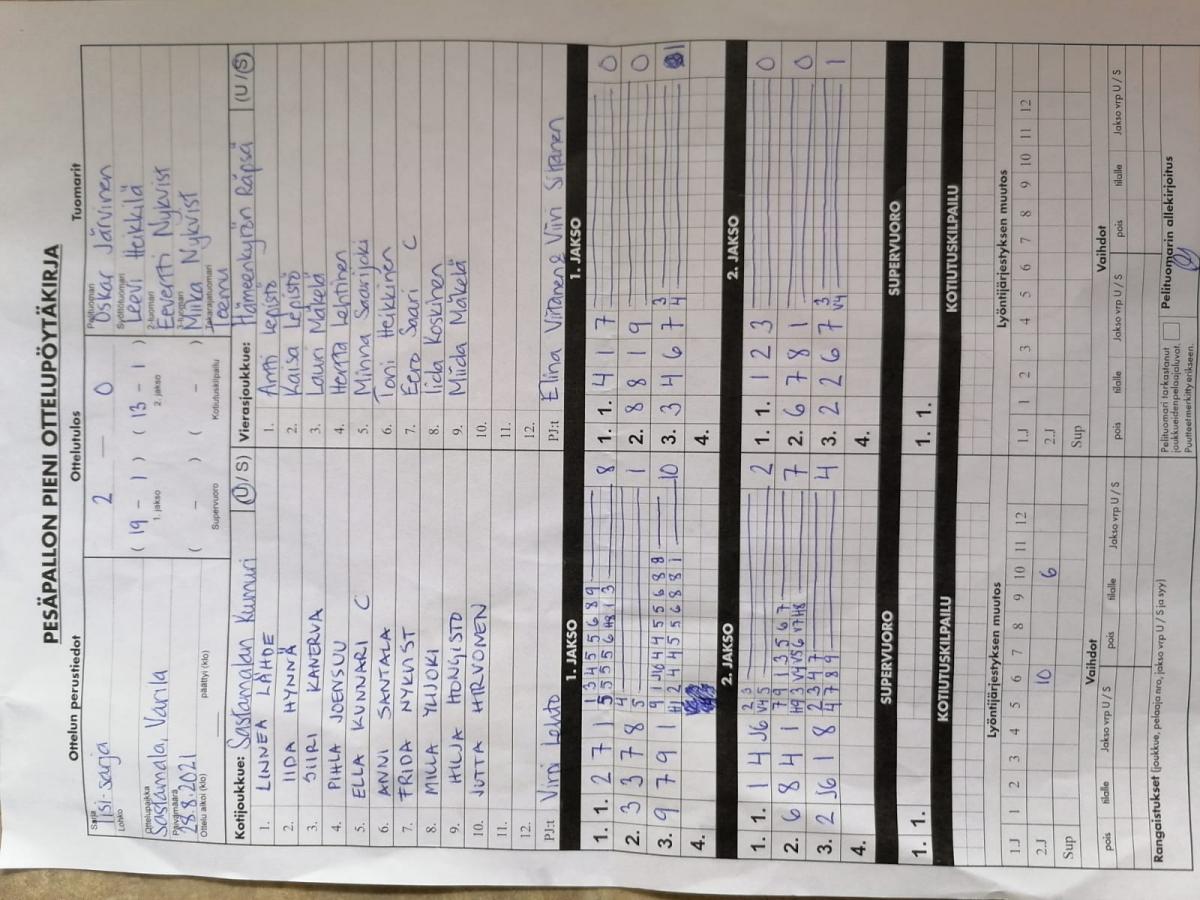 PESÄPALLON PIENI OTTELUPÖYTÄKIRJA
Ottelun perustiedot
Ottelutulos
Tuomarit
Sarja
Tisi-sarja
Lohko
Ottelupaikka
Sastamala, Varila
Päivämäärä
28.8.2021
Ottelu alkoi (klo)
päättyi (klo)
2 — 0
( 19 - 1 ) ( 13 - 1 )
1. jakso
2. jakso
( - ) ( - )
Supervuoro
Kotiutuskilpailu
Pelituomari
Oskar Järvinen
Syöttötuomari
Leevi Heikkilä
2-tuomari
Eevertti Nykvist
3-tuomari
Miika Nykvist
Takarajatuomari
Teemu
Kotijoukkue: Sastamalan Kumuri (U / S)
1. LINNEA LÄHDE
2. IIDA HYNNÄ
3. SIIRI KANERVA
4. PIHLA JOENSUU
5. ELLA KUNNARI C
6. ANNI SANTALA
7. FRIDA NYKVIST
8. MILLA YLIJOKI
9. HILJA HONGISTO
10. JUTTA HIRVONEN
11.
12.
PJ:t Virpi Lehto
Vierasjoukkue: Hämeenkyrön Räpsä (U / S)
1. Antti Lepistö
2. Kaisa Lepistö
3. Lauri Mäkelä
4. Herttä Lehtinen
5. Minna Saarijoki
6. Toni Heikkinen
7. Eero Saari C
8. Iida Koskinen
9. Miida Mäkelä
10.
11.
12.
PJ:t Elina Virtanen & Viivi Siltanen
1. JAKSO
1. JAKSO
1. 1. 2 7 1 5 8
2. 3 3 7 8 5 1
3. 9 7 9 1 10
4.
1. 1. 4 1 7 0
2. 8 8 1 9 0
3. 3 4 6 7 4 3 1
4.
2. JAKSO
2. JAKSO
1. 1. 1 4 J6 V4 5 2 3 2
2. 6 8 4 1 7
3. 2 J6 1 8 4 7 8 9 2 3 4 7 4
4.
1. 1. 1 2 3 0
2. 6 7 8 1 0
3. 2 2 6 7 V4 3 1
4.
SUPERVUORO
SUPERVUORO
1. 1.
1. 1.
KOTIUTUSKILPAILU
KOTIUTUSKILPAILU
Lyöntijärjestyksen muutos
Lyöntijärjestyksen muutos
1.J 1 2 3 4 5 6 7 8 9 10 11 12
2.J 10 6
Sup
1.J 1 2 3 4 5 6 7 8 9 10 11 12
2.J
Sup
Vaihdot
Vaihdot
pois tilalle Jakso vrp U / S pois tilalle Jakso vrp U / S
pois tilalle Jakso vrp U / S pois tilalle Jakso vrp U / S
Rangaistukset (joukkue, pelaaja nro, jakso vrp U / S ja syy)
Pelituomari tarkastanut
joukkueiden pelaajaluvat.
Puutteet merkitty erikseen.
Pelituomarin allekirjoitus